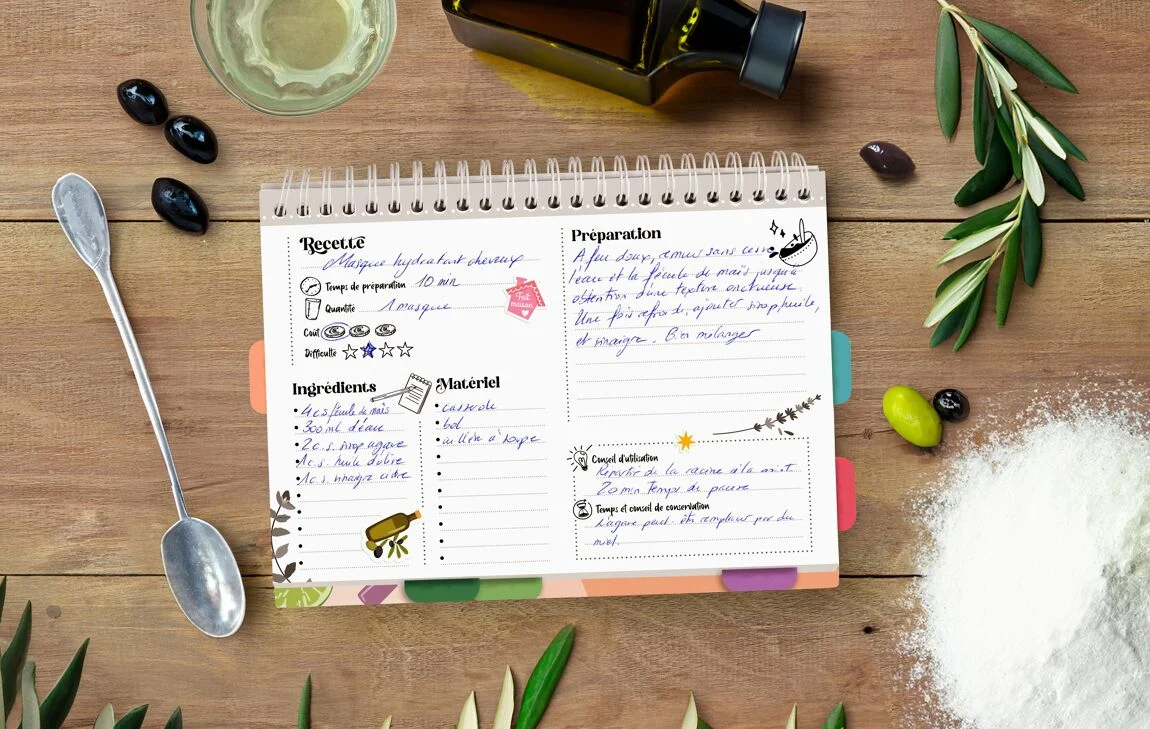 Recette
Masque hydratant cheveux
Temps de préparation 10 min
Quantité 1 masque
Coût
Difficulté
Fait
maison
Ingrédients
4 c.s fécule de maïs
300 ml d'eau
2 c.s. sirop agave
1 c.s. huile d'olive
1 c.s. vinaigre cidre
Matériel
casserole
bol
cuillère à soupe
Préparation
A feu doux, remuer sans cesse
l'eau et la fécule de maïs jusqu'à
obtention d'une texture onctueuse.
Une fois refroidi, ajouter sirop, huile,
et vinaigre. Bien mélanger
Conseil d'utilisation
Répartir de la racine à la
20 min Temps de pause
Temps et conseil de conservation
L'agave peut être remplacé par du
miel.